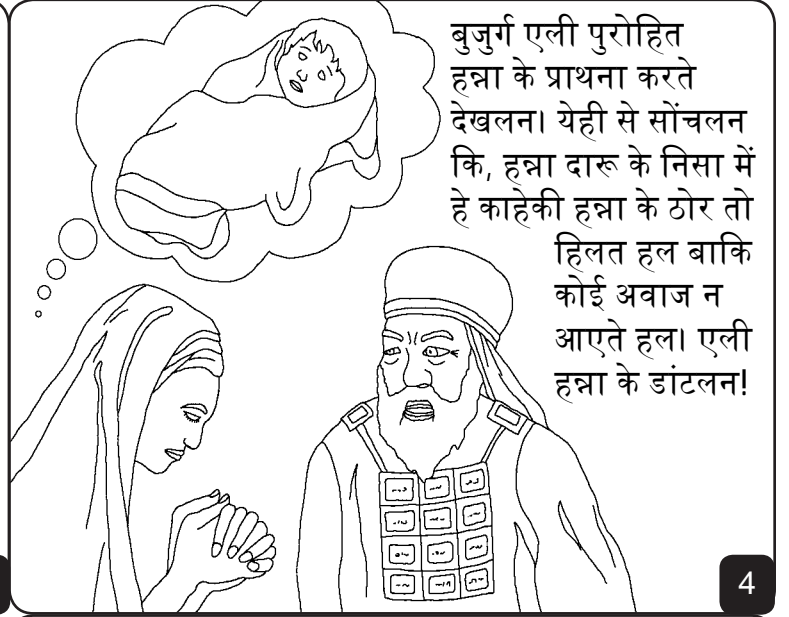 बुजुर्ग एली पुरोहित
हन्ना के प्राथना करते
देखलन। येही से सोंचलन
कि, हन्ना दारू के निसा में
हे काहेकी हन्ना के ठोर तो
हिलत हल बाकि
कोई अवाज न
आएते हल। एली
हन्ना के डांटलन!
4